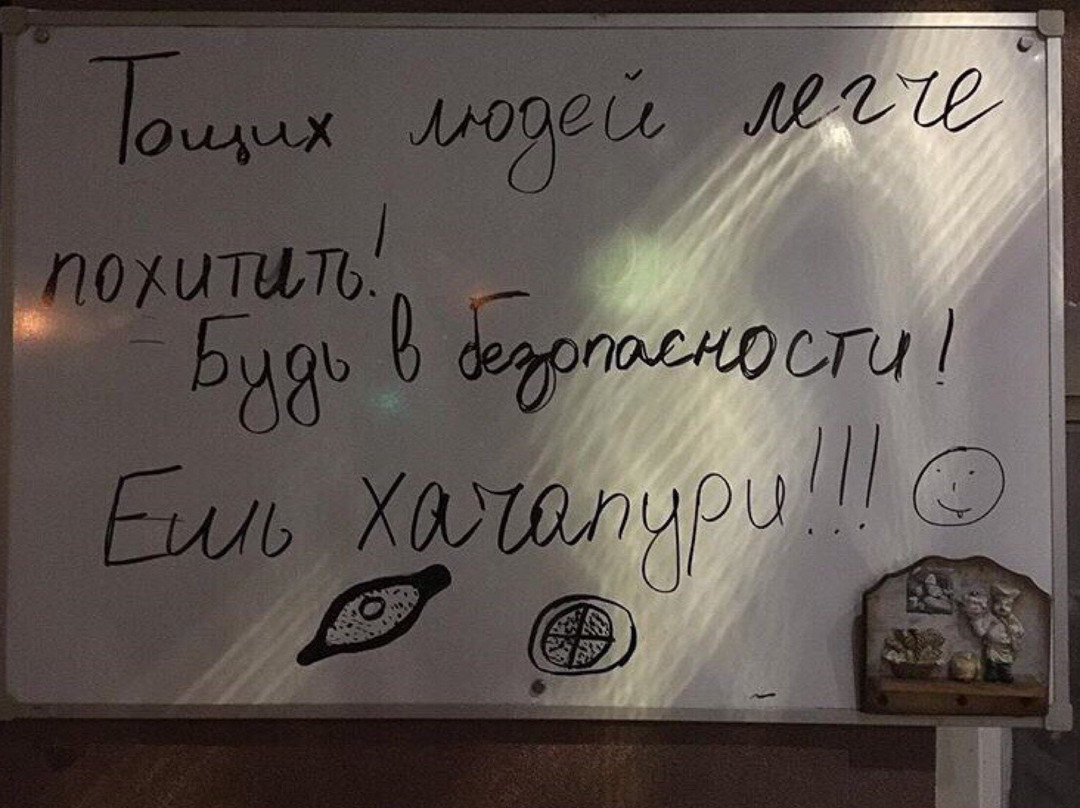 Тощих людей легче
похитить!
Будь в безопасности!
Ешь хачапури!!!